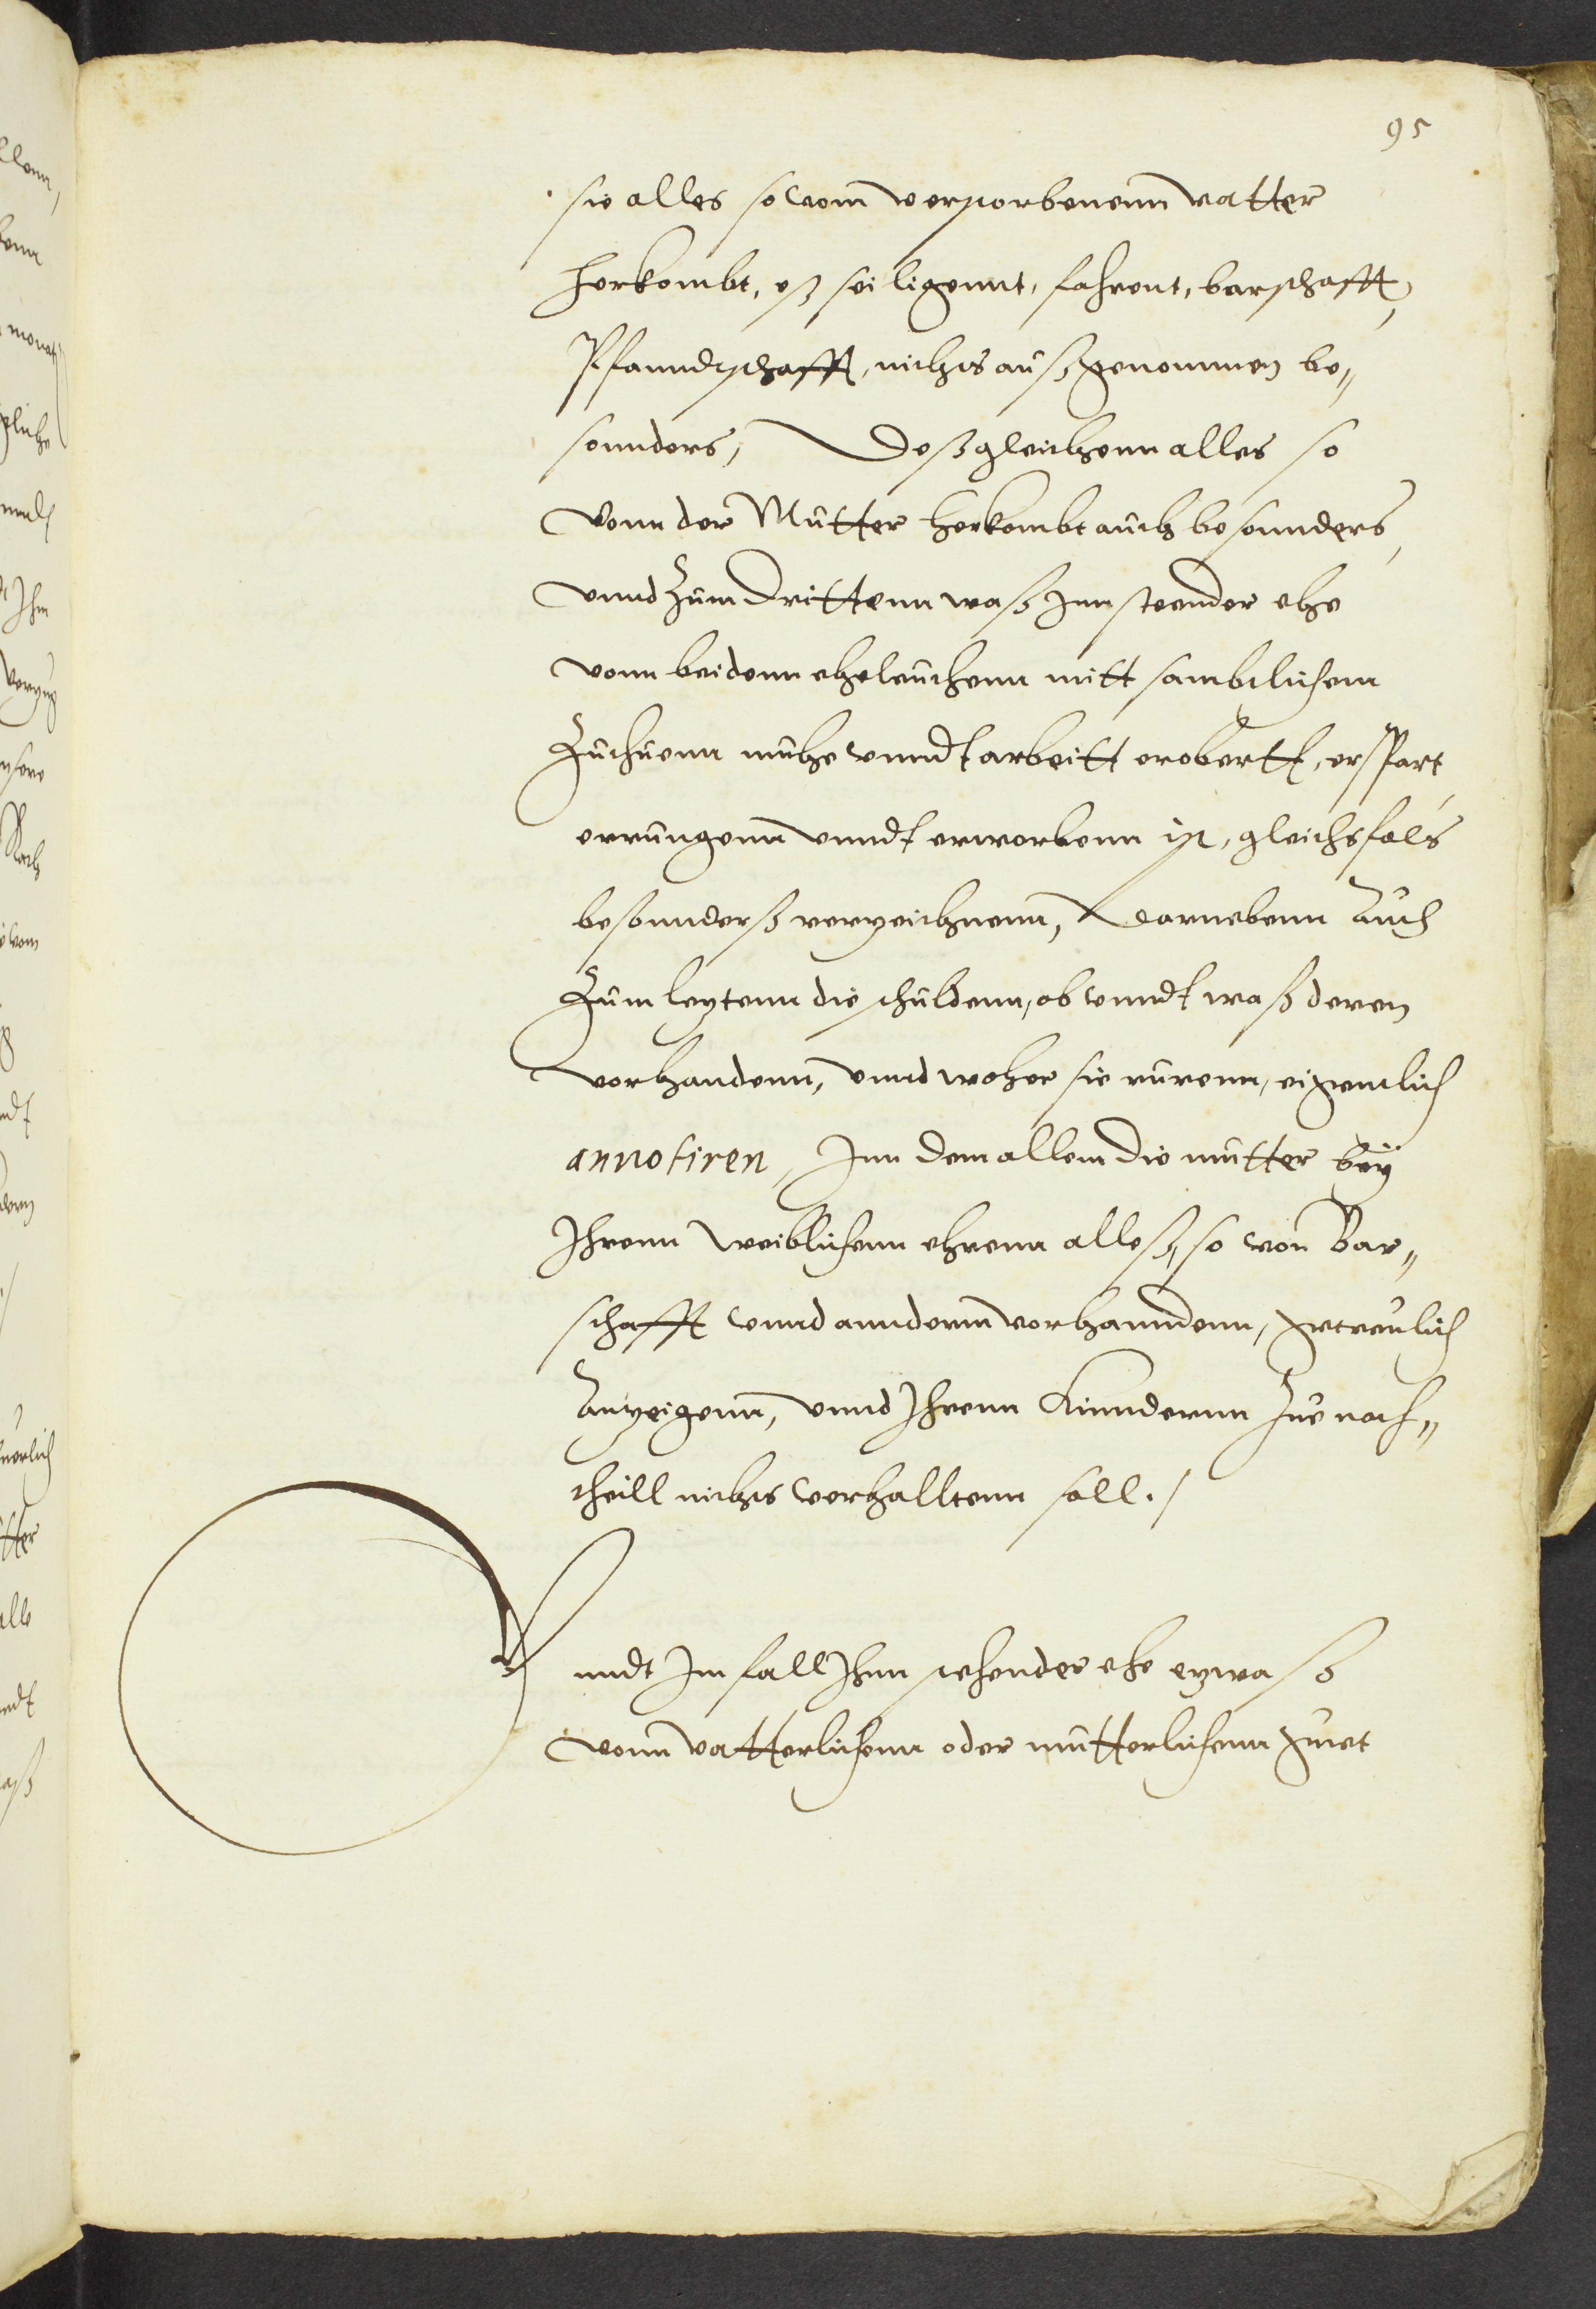 95
sie alles so vom verstorbenenn vatter
herkombt, eß sei ligennt, fahrent, barschafft,
Pfanndtschafft, nichts außgenommen be„
sonnders, Deßgleichenn alles so
vonn der Mutter herkombt auch besonnders,
vnnd zum Drittenn waß Inn steender ehe
vonn beidenn eheleuthenn mitt sambtlichem
Zuthuenn muhe vnndt arbeitt erobertt, erspart,
errungenn vnndt erworbenn ist, gleichsfals
besonnderß verzeichnenn, Darnebenn Auch
Zum letztenn die schuldenn, ob vnndt waß deren
vorhandenn, vnnd woher sie rurenn, eigentlich
annotiren, Inn dem allem die mutter bey
Ihrenn weiblichenn ehrenn alleß, so von Bar„
schafft vnnd annderm vorhanndenn, getreulich
Anzeigenn, vnnd Ihrenn Kinndernn Zue nach„
theill nichts verhalltenn soll./
Vnndt Im fall Ihnn stehender ehe etzwaß
vonn vatterlichenn oder mutterlichenn guet